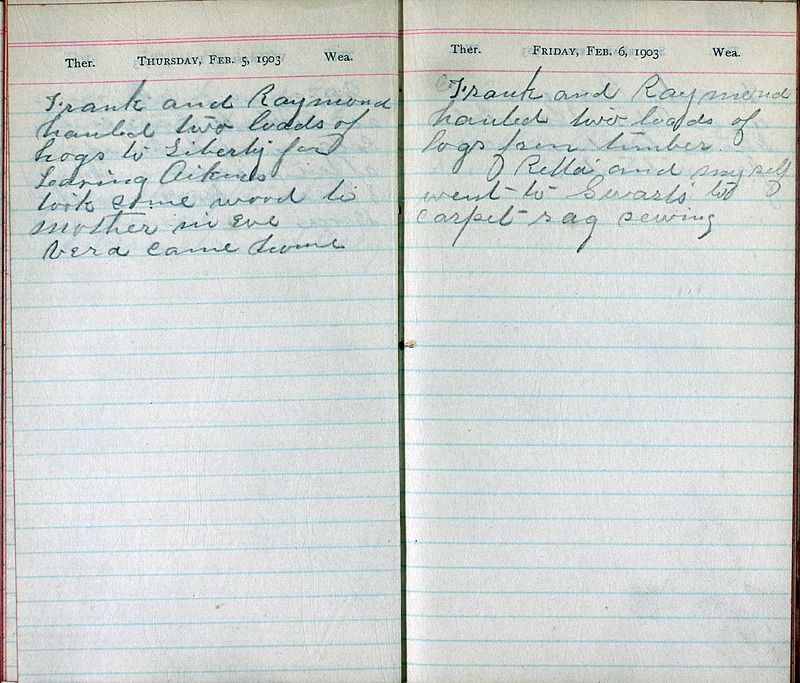 Ther. THURSDAY, FEB. 5, 1903 Wea.
Frank and Raymond
hauled two loads of
hogs to Liberty for
Loaving Aikins
took some wood to
mother in eve
Vera came home
Ther. FRIDAY, FEB. 6, 1903 Wea.
Frank and Raymond
hauled two loads of
logs from timber.
Retta and myself
went to Swarts to
carpet rag sewing